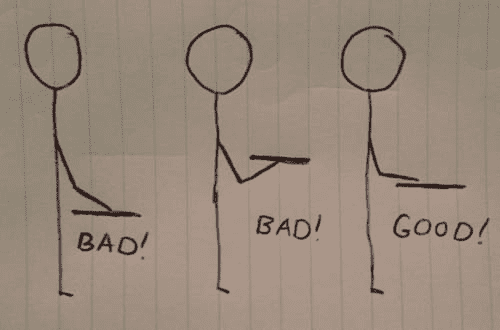 BAD!
BAD!
GOOD!